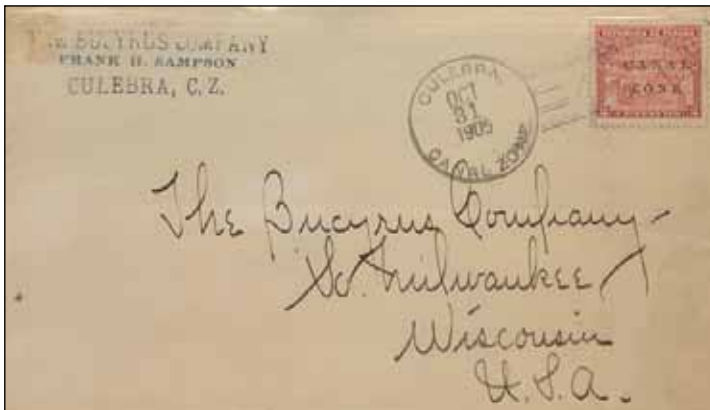 BUCYRUS COMPANY
FRANK H. SAMPSON
CULEBRA, C. Z.
CULEBRA,
OCT
31
1905
CANAL ZONE
REPUBLICA DE PANAMA
CANAL
ZONE
The Bucyrus Company
So. Milwaukee
Wisconsin
U.S.A.